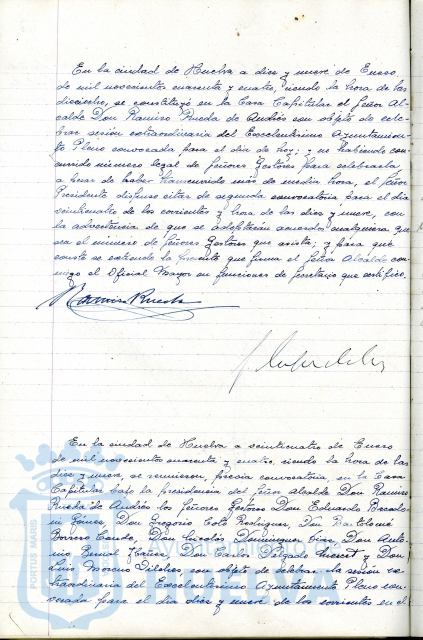 En la ciudad de Huelva a diez y nueve de Enero
de mil novecientos cuarenta y cuatro, siendo la hora de las
dieciocho, se constituyó en la Casa Capitular el Señor Al-
calde Don Ramiro Rueda de Andrés con objeto de cele-
brar sesión extraordinaria del Excelentísimo Ayuntamien-
to Pleno convocada para el dia de hoy; y no habiendo con-
currido número legal de Señores Gestores para celebrarla
a pesar de haber transcurrido más de media hora, el Señor
Presidente dispuso citar de segunda convocatoria para el dia
veinticuatro de los corrientes y hora de las diez y nueve, con
la advertencia de que se adoptarán acuerdos cualquiera que
sea el número de Señores Gestores que asista; y para que
conste se extiende la presente que firma el Señor Alcalde con-
migo el Oficial Mayor en funciones de Secretario que certifico.
Ramiro Rueda
En la ciudad de Huelva a veinticuatro de Enero
de mil novecientos cuarenta y cuatro, siendo la hora de las
diez y nueve, se reunieron, previa convocatoria, en la Casa
Capitular bajo la presidencia del Señor Alcalde Don Ramiro
Rueda de Andrés los Señores Gestores Don Eduardo
Don Gregorio Rodríguez, Don Bartolomé
Borrero Conde, Don Nicolás Dominguez Don Anto-
nio Don Carlos Delgado y Don
Luis Moreno con objeto de celebrar la sesión ex-
traordinaria del Excelentísimo Ayuntamiento Pleno con-
vocada para el dia diez y nueve de los corrientes en el
PORTUS MARIS